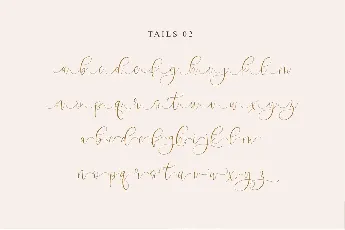 TAILS 02
a b c d e f g h i j k l m
n o p q r s t u v w x y z
a b c d e f g h i j k l m
n o p q r s t u v w x y z